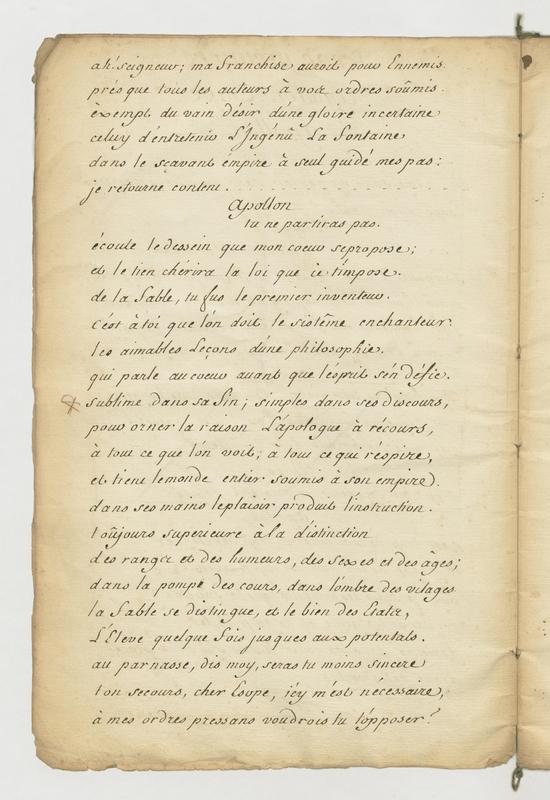 ah! seigneur; ma franchise auroit pour Ennemis.
présque tous les auteurs à vos ordres soûmis.
éxempt du vain désir d'une gloire incertaine
celuy d'entretenir L'Ingénû La fontaine
dans le sçavant émpire à seul guidé mes pas:
je retourne content. . . . . . . . . . . . . . . .
Apollon
tu ne partiras pas.
écoute le dessein que mon coeur se propose;
et le tien chérira la loi que je t'impose.
de la fable, tu fus le premier inventeur.
C'ést à toi que l'ón doit le sistême enchanteur.
les aimables Leçons d'une philosophie.
qui parle au coeur avant que l'ésprit s'én défie.
sublime dans sa fin; simples dans ses discours,
pour orner la raison L'apologue à récours,
à tout ce que l'ón voit, à tous ce qui réspire,
et tient le monde entier soumis à son empire.
dans ses mains le plaisir produit l'instruction.
toûjours superieure à la distinction
des rangs et des humeurs, des sexes et des âges;
dans la pompe des cours, dans l'ombre des vilages
la fable se distingue, et le bien des Etats,
L'Eleve quelque fois jusques aux potentats.
au parnasse, dis moy, seras tu moins sincere
ton secours, cher Esope, icy m'est nécessaire,
à mes ordres pressans voudrois tu t'ópposer?